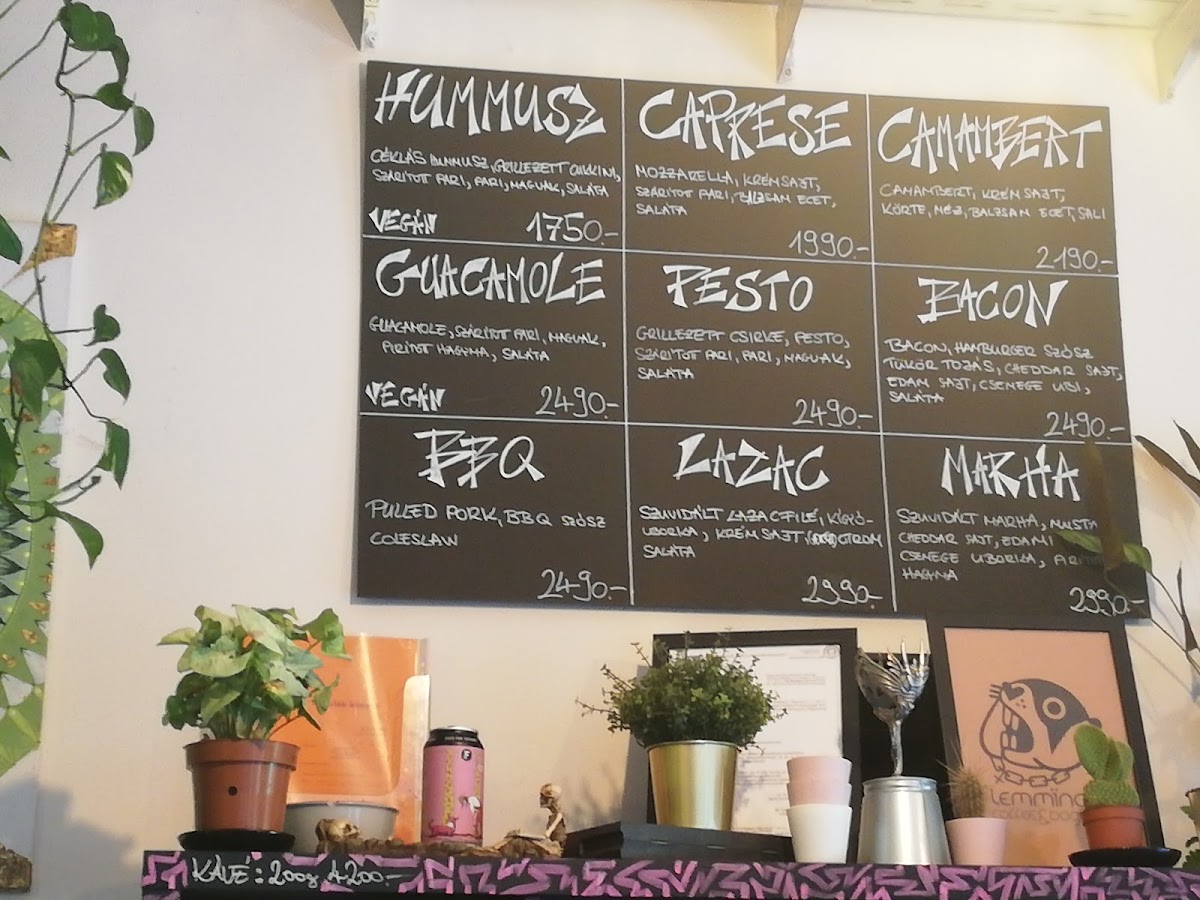 HUMMUSZ
CÉKLÁS HUMMUSZ, GRILLEZETT CUKKINI,
SZÁRÍTOT PARI, PARI, MAGVAK, SALÁTA
VEGÁN 1750.-
CAPRESE
MOZZARELLA, KRÉMSAJT,
SZÁRÍTOT PARI, BALZSAM ECET,
SALÁTA
1990.-
CAMAMBERT
CAMAMBERT, KRÉM SAJT,
KÖRTE, MÉZ, BALZSAM ECET, SALI
2190.-
GUACAMOLE
GUACAMOLE, SZÁRÍTOT PARI, MAGVAK,
PIRÍTOT HAGYMA, SALÁTA
VEGÁN 2490.-
PESTO
GRILLEZETT CSIRKE, PESTO,
SZÁRÍTOT PARI, PARI, MAGVAK,
SALÁTA
2490.-
BACON
BACON, HAMBURGER SZÓSZ
TÜKÖR TOJÁS, CHEDDAR SAJT,
EDAMI SAJT, CSEMEGE UBI,
SALÁTA
2490.-
BBQ
PULLED PORK, BBQ SZÓSZ
COLESLAW
2490.-
LAZAC
SZUVIDÁLT LAZACFILÉ, KÍGYÓ-
UBORKA, KRÉMSAJT, CITROM
SALÁTA
2990.-
MARHA
SZUVIDÁLT MARHA, MUSTÁ
CHEDDAR SAJT, EDAMI
CSEMEGE UBORKA,
HAGYMA
2990.-
LEMMING
KÁVÉ: 200g 4.200.-